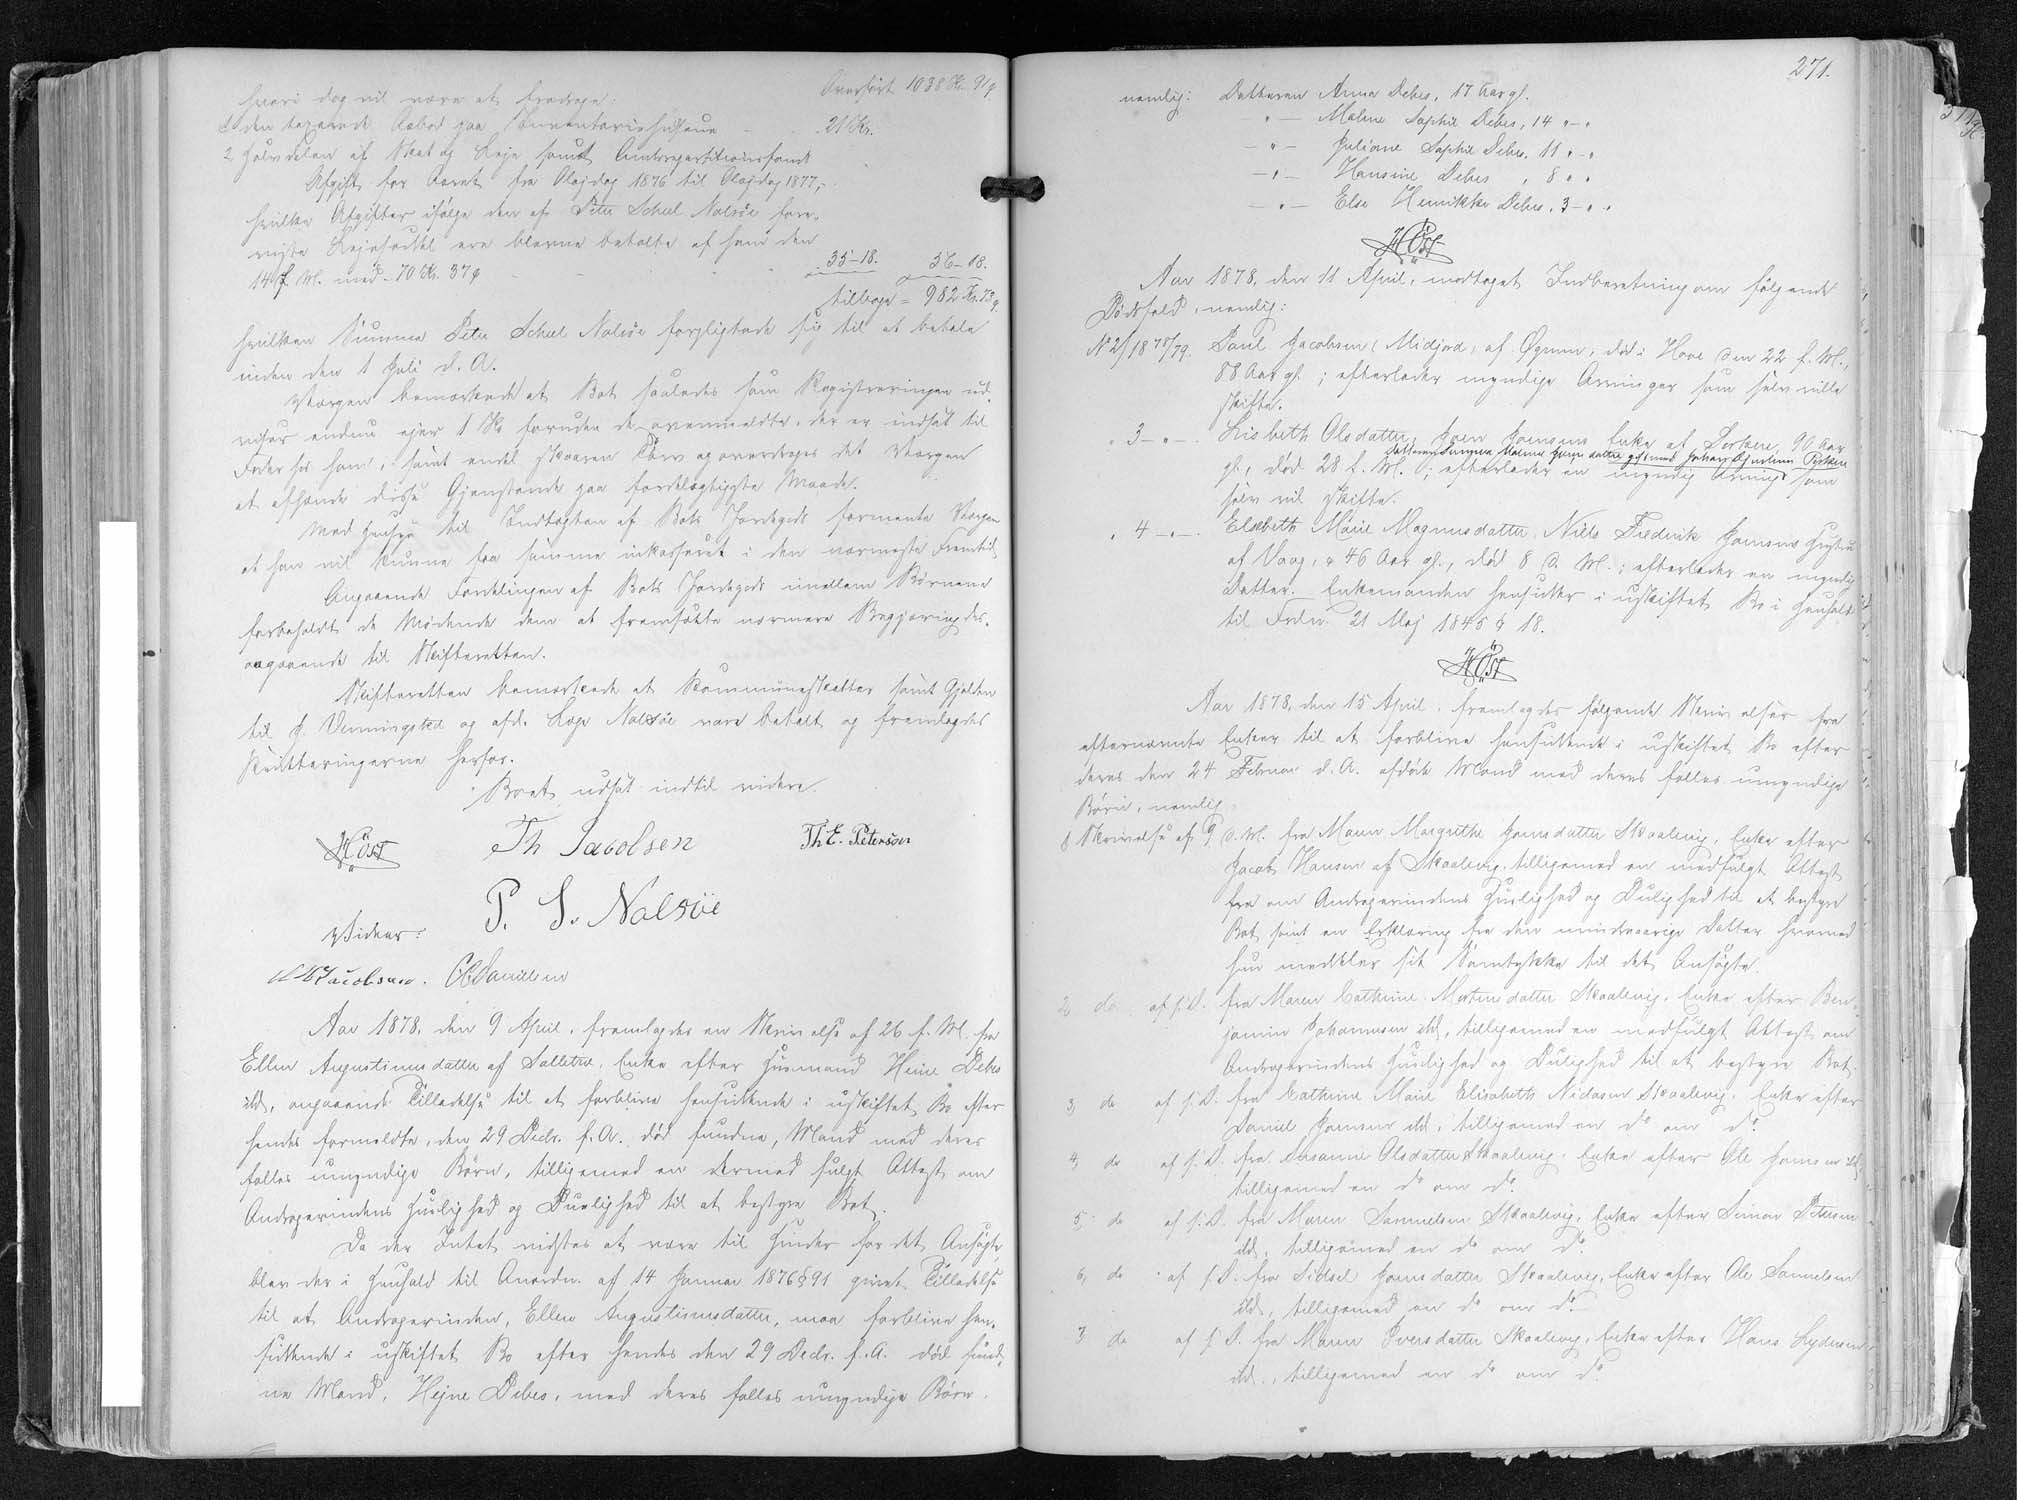 Overført 1038 Kr. 91 ø
hvori dog vil være at fradrage:
1 den taxerede Aabod paa Inventariehusene - 21 Kr.
2 Halvdelen af Skat og Leje samt Amtsrepartitionsfonds
Afgift for Aaret fra Olajdag 1876 til Olajdag 1877,
hvilke Afgifter ifølge den af Peter Scheel Nolsøe fore-
viste Lejeseddel ere blevne betalte af ham den
14 f. M. med - 70 Kr. 37 ø - 35 - 18. 56 - 18.
tilbage = 982 Kr. 73 ø
hvilken Summa Peter Scheel Nolsøe forpligtede sig til at betale
inden den 1 Juli d. A.
Værgen bemærkede at Boet saaledes som Registreringen ud-
viser endnu ejer 1 Ko foruden de ovenmeldte, der er indsat til
Foder hos ham, samt endel skaaren Tørv og overdroges det Værgen
at afhænde disse Gjenstande paa fordelagtigste Maade.
Med Hensyn til Indtægten af Boets Jordegods formente Værgen
at han vil kunne faa samme inkasseret i den nærmeste Fremtid
Angaaende Fordelingen af Boets Jordegods imellem Børnene
forbeholdt de Mødende dem at fremsætte nærmere Begjæring des-
angaaende til Skifteretten.
Skifteretten bemærkede at Kommuneskatter samt Gjælden
til J. Venningsted og afd. Læge Nolsøe vare betalt og fremlagdes
Kvitteringerne herfor.
Boet udsat indtil videre.
Høst Th Jacobsen Th E. Petersen
P. S. Nolsøe
Vidner:
Jacobsen. Danielsen
Aar 1878, den 9 April, fremlagdes en Skrivelse af 26 f. M. fra
Ellen Augustinusdatter af Selletræ, Enke efter Husmand Heine Debes
ibd, angaaende Tilladelse til at forblive hensiddende i uskiftet Bo efter
hendes formeldte, den 29 Decbr. f. A. død fundne, Mand med deres
fælles umyndige Børn, tilligemed en dermed fulgt Attest om
Andragerindens Huslighed og Duelighed til at bestyre Boet.
Da der Intet vidstes at være til Hinder for det Ansøgte
blev der i Henhold til Anordn. af 14 Januar 1876 § 91 givet Tilladelse
til at Andragerinden, Ellen Augustinusdatter, maa forblive hen-
siddende i uskiftet Bo efter hendes den 29 Decbr. f. A. død fund-
ne Mand, Hejne Debes, med deres fælles umyndige Børn.
271.
nemlig: Datteren Anna Debes, 17 Aar gl.
- " - Malene Sophie Debes, 14 " - "
- " - Juliane Sophie Debes, 11 " - "
- " - Hansine Debes, 8 " "
- " - Else Henrikke Debes, 3 - " "
Høst
Aar 1878, den 11 April, modtaget Indberetning om følgende
Dødsfald, nemlig:
No 2/1878/79. Poul Jacobsen (Midjord) af Øgrum, død i Hove den 22 f. M.,
88 Aar gl.; efterlader myndige Arvinger som selv ville
skifte.
" 3 - " - . Lisbeth Olsdatter, Joen Joensens Enke af Lorvig, 90 Aar
Datteren Sunneva Malene Joensdatter gift med Johan
gl., død 28 f. M.; efterlader en myndig Arving som
selv vil skifte.
" 4 - " - . Elsebeth Marie Magnusdatter, Niels Frederik Joensens Hustru
af Vaag, 46 Aar gl., død 8 d. M.; efterlader en myndig
Datter. Enkemanden hensidder i uskiftet Bo i Henhold
til Frdn. 21 Maj 1845 § 18.
Høst
Aar 1878, den 15 April, fremlagdes følgende Skrivelser fra
efternævnte Enker til at forblive hensiddende i uskiftet Bo efter
deres den 24 Februar d. A. afdøde Mænd med deres fælles umyndige
Børn, nemlig
1 Skrivelse af 9 d. M. fra Maren Margrethe Joensdatter Skaalevig, Enke efter
Jacob Hansen af Skaalevig, tilligemed en medfulgt Attest
fra om Andragerindens Huslighed og Duelighed til at bestyre
Boet samt en Erklæring fra den mindreaarige Datter hvorved
hun meddeler sit Samtykke til det Ansøgte.
2 do. af s. D. fra Maren Cathrine Mortensdatter Skaalevig, Enke efter Ben-
jamin Johannesen ibd, tilligemed en medfulgt Attest om
Andragerindens Huslighed og Duelighed til at bestyre Boet.
3, do af s. D. fra Cathrine Marie Elisabeth Skaalevig, Enke efter
Daniel Joensen ibd, tilligemed en do om do.
4, do af s. D. fra Susanne Olsdatter Skaalevig, Enke efter Ole Joensen ibd,
tilligemed en do om do.
5, do af s. D. fra Maren Samuelsen Skaalevig, Enke efter Simon Petersen
ibd, tilligemed en do om do.
6, do af s. D. fra Sidsel Joensdatter Skaalevig, Enke efter Ole Samuelsen
ibd, tilligemed en do om do.
7 do af s. D. fra Maren Iversdatter Skaalevig, Enke efter Hans Lydersen
ibd., tilligemed en do om do.